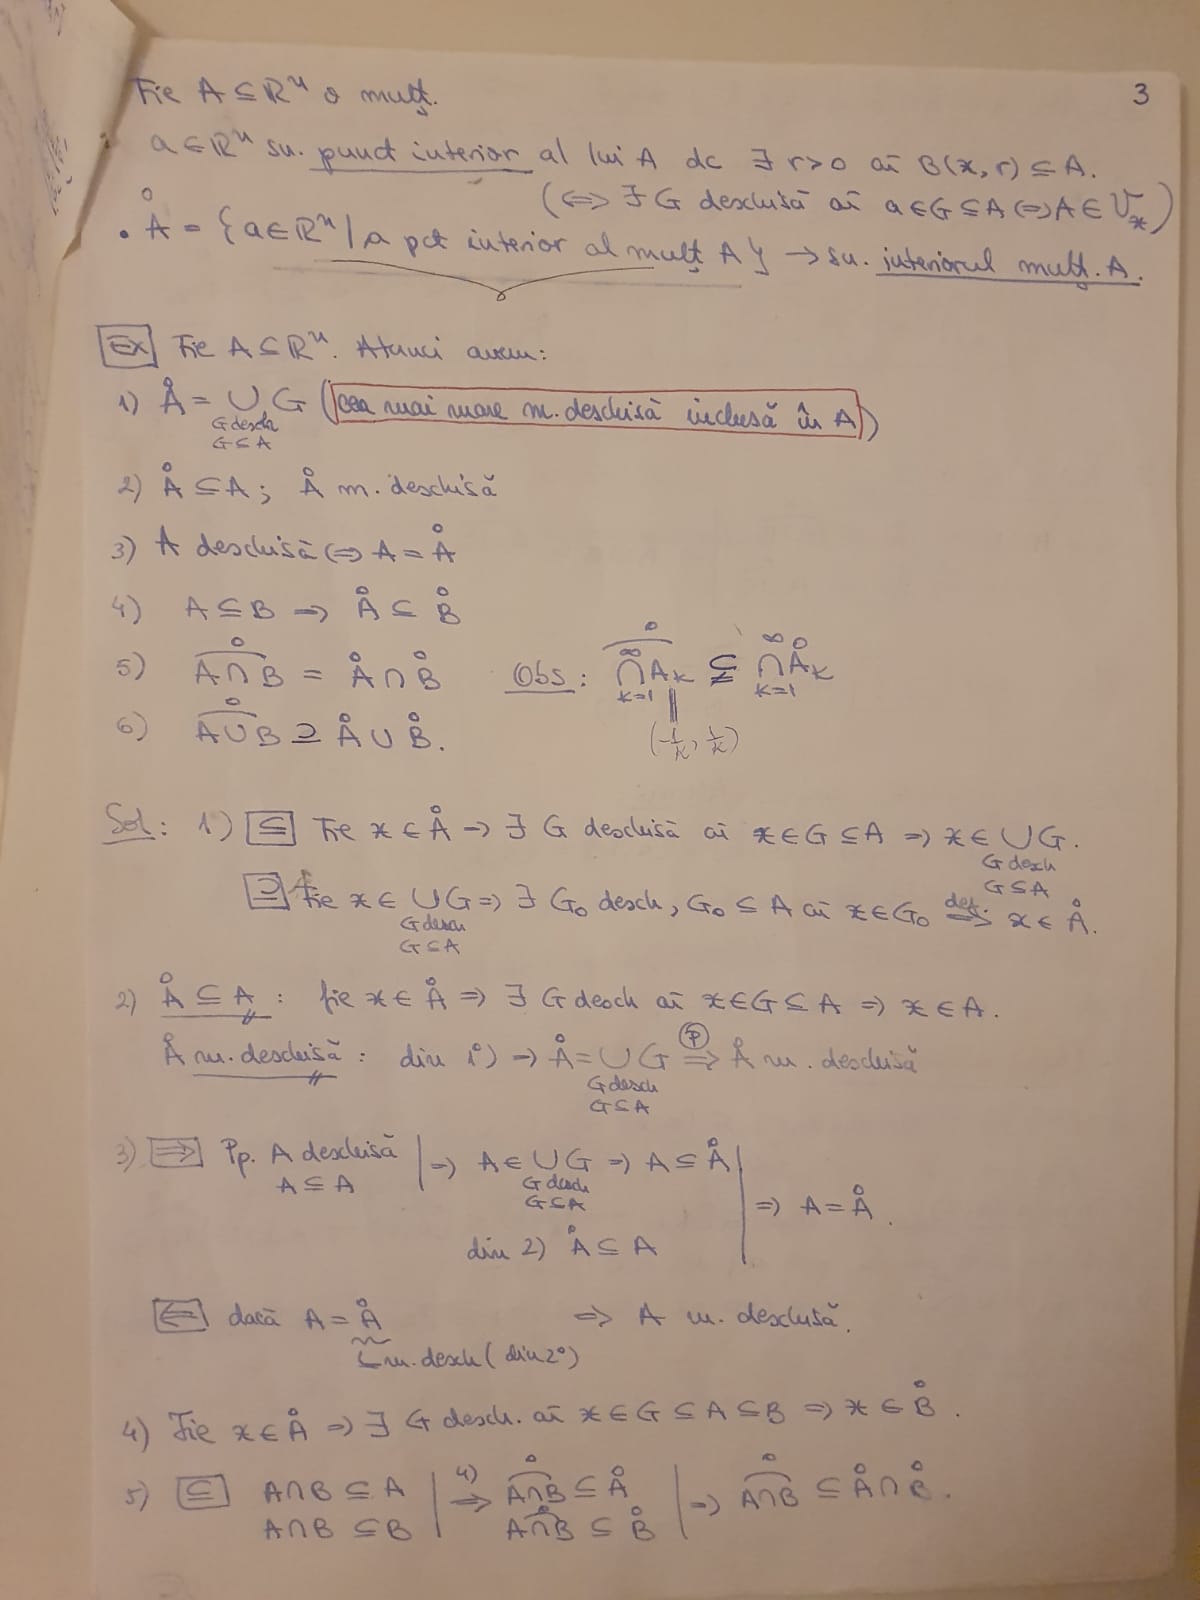 3
Fie A ⊆ ℝⁿ o mulț.
a ∈ ℝⁿ s.n. punct interior al lui A dc ∃ r>0 aî B(x, r) ⊆ A.
(⇔ ∃ G deschisă aî a ∈ G ⊆ A ⇔ A ∈ 𝒱ₓ)
• Å = {a ∈ ℝⁿ | a pct interior al mulț A} → s.n. interiorul mulț. A.
Ex Fie A ⊆ ℝⁿ. Atunci avem:
1) Å = ∪ G (cea mai mare m. deschisă inclusă în A)
G desch
G ⊆ A
2) Å ⊆ A; Å m. deschisă
3) A deschisă ⇔ A = Å
4) A ⊆ B ⇒ Å ⊆ B̊
5) \overset{∘}{\overline{A ∩ B}} = Å ∩ B̊ Obs: \overset{∘}{\overline{∩_{k=1}^{∞} A_k}} ⊊ ∩_{k=1}^{∞} Å_k
||
(-1/k, 1/k)
6) \overset{∘}{\overline{A ∪ B}} ⊇ Å ∪ B̊.
Sol: 1) ⊆ Fie x ∈ Å ⇒ ∃ G deschisă aî x ∈ G ⊆ A ⇒ x ∈ ∪ G.
G desch
G ⊆ A
⊇ Fie x ∈ ∪ G ⇒ ∃ G₀ desch, G₀ ⊆ A aî x ∈ G₀ ⇒(def.) x ∈ Å.
G desch
G ⊆ A
2) Å ⊆ A : fie x ∈ Å ⇒ ∃ G desch aî x ∈ G ⊆ A ⇒ x ∈ A.
Å m. deschisă : din 1°) ⇒ Å = ∪ G ⇒(P) Å m. deschisă
G desch
G ⊆ A
3) ⇒ Pp. A deschisă | ⇒ A ∈ ∪ G ⇒ A ⊆ Å |
A ⊆ A G desch
G ⊆ A ⇒ A = Å.
din 2) Å ⊆ A
⇐ dacă A = Å ⇒ A m. deschisă.
↳ m. desch (din 2°)
4) Fie x ∈ Å ⇒ ∃ G desch. aî x ∈ G ⊆ A ⊆ B ⇒ x ∈ B̊.
5) ⊆ A ∩ B ⊆ A | ⇒(4) \overset{∘}{\overline{A ∩ B}} ⊆ Å | ⇒ \overset{∘}{\overline{A ∩ B}} ⊆ Å ∩ B̊.
A ∩ B ⊆ B | \overset{∘}{\overline{A ∩ B}} ⊆ B̊ |